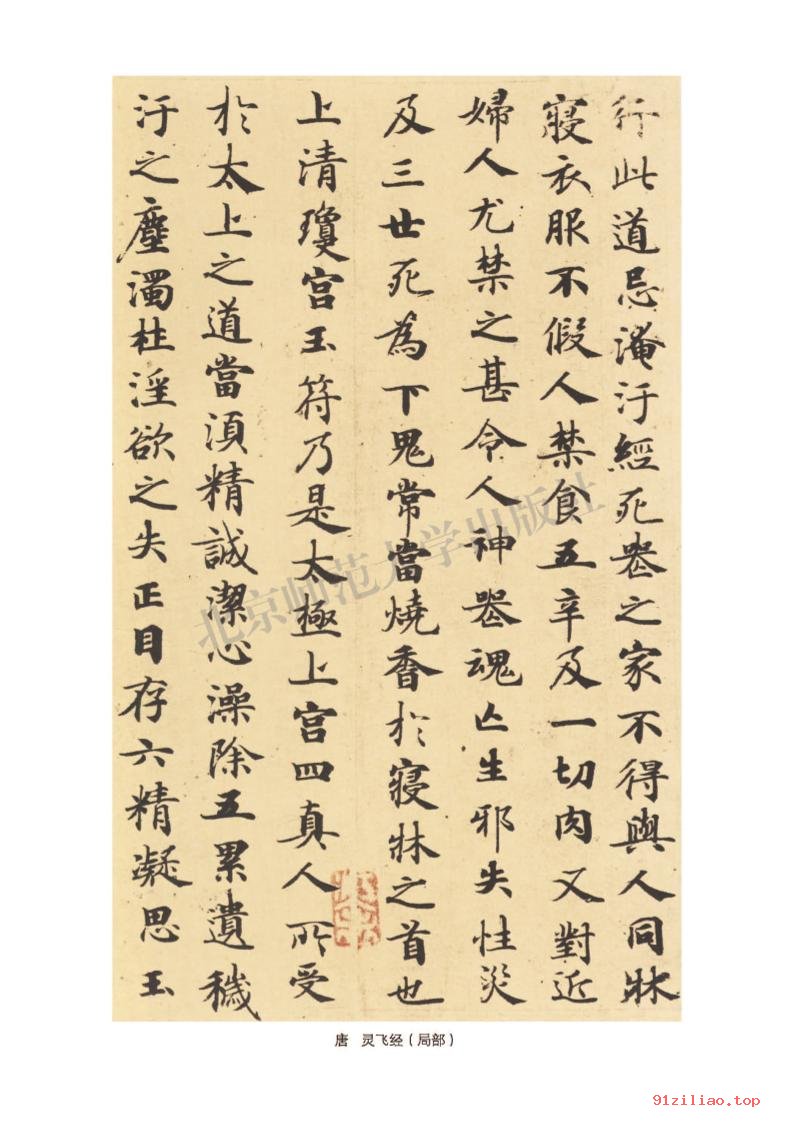 行此道忌淹汙經死喪之家不得與人同牀
寢衣服不假人禁食五辛及一切肉又對近
婦人尤禁之甚令人神喪魂亡生邪失性災
及三世死為下鬼常當燒香於寢牀之首也
上清瓊宮玉符乃是太極上宮四真人所受
於太上之道當須精誠潔心澡除五累遺穢
汙之塵濁杜淫欲之失正目存六精凝思玉
北京师范大学出版社
唐 灵飞经（局部）
91ziliao.top